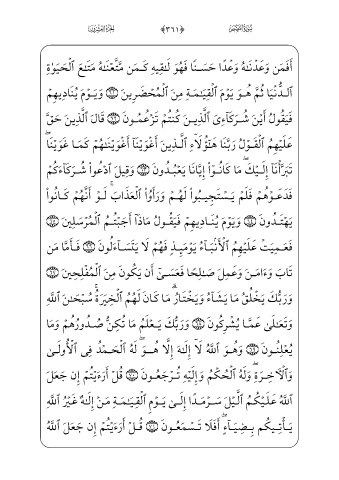 سُورَةُ القَصَصِ ﴿٣٦١﴾ الجُزْءُ العِشْرُونَ
أَفَمَن وَعَدْنَٰهُ وَعْدًا حَسَنًا فَهُوَ لَٰقِيهِ كَمَن مَّتَّعْنَٰهُ مَتَٰعَ ٱلْحَيَوٰةِ
ٱلدُّنْيَا ثُمَّ هُوَ يَوْمَ ٱلْقِيَٰمَةِ مِنَ ٱلْمُحْضَرِينَ ۝ وَيَوْمَ يُنَادِيهِمْ
فَيَقُولُ أَيْنَ شُرَكَآءِىَ ٱلَّذِينَ كُنتُمْ تَزْعُمُونَ ۝ قَالَ ٱلَّذِينَ حَقَّ
عَلَيْهِمُ ٱلْقَوْلُ رَبَّنَا هَٰٓؤُلَآءِ ٱلَّذِينَ أَغْوَيْنَآ أَغْوَيْنَٰهُمْ كَمَا غَوَيْنَا ۖ
تَبَرَّأْنَآ إِلَيْكَ ۖ مَا كَانُوٓا۟ إِيَّانَا يَعْبُدُونَ ۝ وَقِيلَ ٱدْعُوا۟ شُرَكَآءَكُمْ
فَدَعَوْهُمْ فَلَمْ يَسْتَجِيبُوا۟ لَهُمْ وَرَأَوُا۟ ٱلْعَذَابَ ۚ لَوْ أَنَّهُمْ كَانُوا۟
يَهْتَدُونَ ۝ وَيَوْمَ يُنَادِيهِمْ فَيَقُولُ مَاذَآ أَجَبْتُمُ ٱلْمُرْسَلِينَ ۝
فَعَمِيَتْ عَلَيْهِمُ ٱلْأَنۢبَآءُ يَوْمَئِذٍ فَهُمْ لَا يَتَسَآءَلُونَ ۝ فَأَمَّا مَن
تَابَ وَءَامَنَ وَعَمِلَ صَٰلِحًا فَعَسَىٰٓ أَن يَكُونَ مِنَ ٱلْمُفْلِحِينَ ۝
وَرَبُّكَ يَخْلُقُ مَا يَشَآءُ وَيَخْتَارُ ۗ مَا كَانَ لَهُمُ ٱلْخِيَرَةُ ۚ سُبْحَٰنَ ٱللَّهِ
وَتَعَٰلَىٰ عَمَّا يُشْرِكُونَ ۝ وَرَبُّكَ يَعْلَمُ مَا تُكِنُّ صُدُورُهُمْ وَمَا
يُعْلِنُونَ ۝ وَهُوَ ٱللَّهُ لَآ إِلَٰهَ إِلَّا هُوَ ۖ لَهُ ٱلْحَمْدُ فِى ٱلْأُولَىٰ
وَٱلْءَاخِرَةِ ۖ وَلَهُ ٱلْحُكْمُ وَإِلَيْهِ تُرْجَعُونَ ۝ قُلْ أَرَءَيْتُمْ إِن جَعَلَ
ٱللَّهُ عَلَيْكُمُ ٱلَّيْلَ سَرْمَدًا إِلَىٰ يَوْمِ ٱلْقِيَٰمَةِ مَنْ إِلَٰهٌ غَيْرُ ٱللَّهِ
يَأْتِيكُم بِضِيَآءٍ ۖ أَفَلَا تَسْمَعُونَ ۝ قُلْ أَرَءَيْتُمْ إِن جَعَلَ ٱللَّهُ